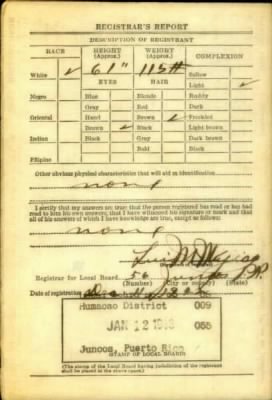 REGISTRAR'S REPORT
DESCRIPTION OF REGISTRANT
RACE HEIGHT (Approx.) WEIGHT (Approx.) COMPLEXION
White ✓ 61" 115# Sallow
EYES HAIR Light ✓
Negro Blue Blonde Ruddy
Gray Red Dark
Oriental Hazel Brown ✓ Freckled
Brown ✓ Black Light brown
Indian Black Gray Dark brown
Bald Black
Filipino
Other obvious physical characteristics that will aid in identification
none
I certify that my answers are true; that the person registered has read or has had
read to him his own answers; that I have witnessed his signature or mark and that
all of his answers of which I have knowledge are true, except as follows:
none
Luis M.
Registrar for Local Board 56 Juncos P.R.
(Number) (City or county) (State)
Date of registration
Humacao District 009
JAN 12 055
Juncos, Puerto Rico
(STAMP OF LOCAL BOARD)
(The stamp of the Local Board having jurisdiction of the registrant
shall be placed in the above space.)